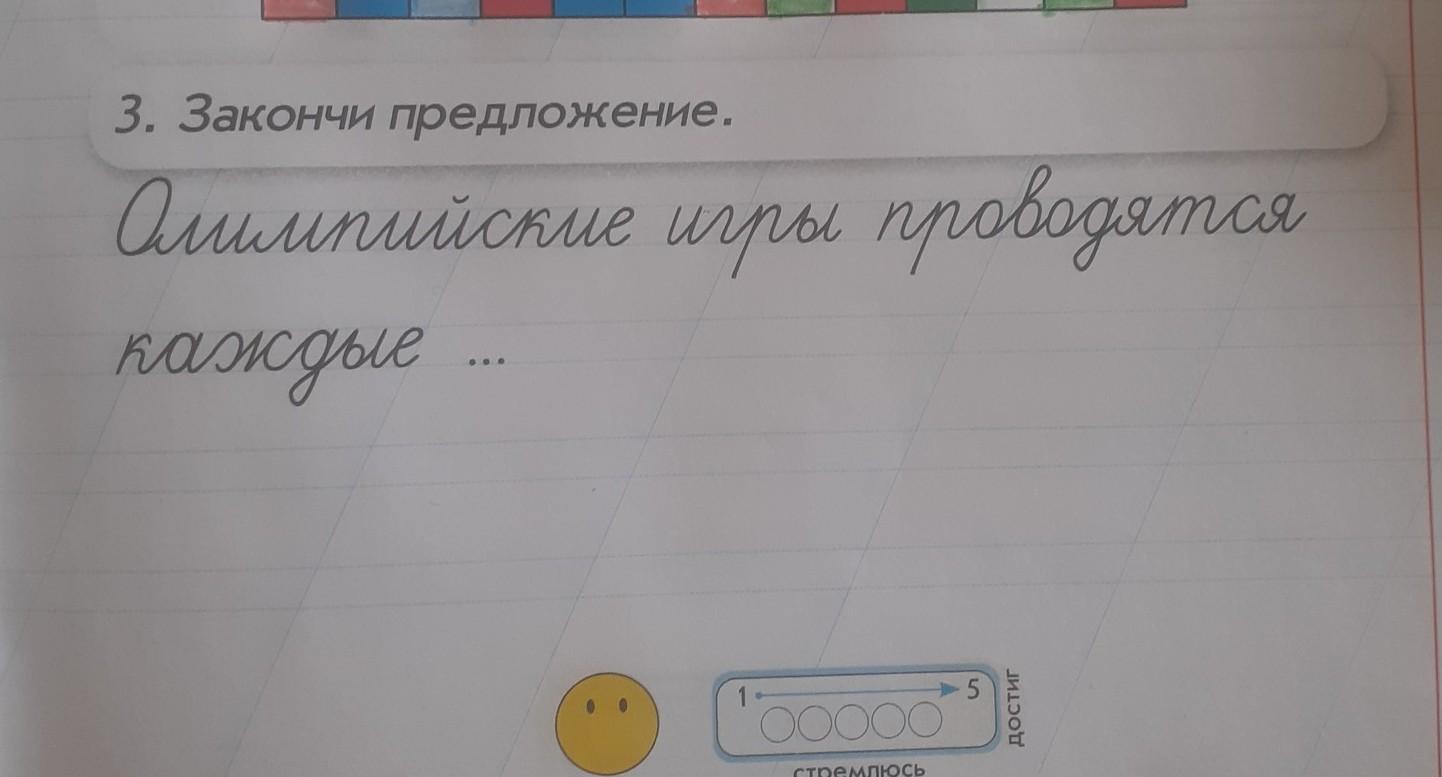 3. Закончи предложение.
Олимпийские игры проводятся
каждые ...
1 5
достиг
стремлюсь